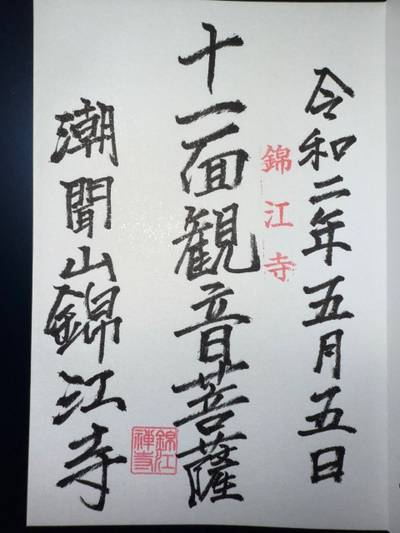 令和二年五月五日
錦江寺
十一面観音菩薩
潮聞山錦江寺
錦江
禅寺